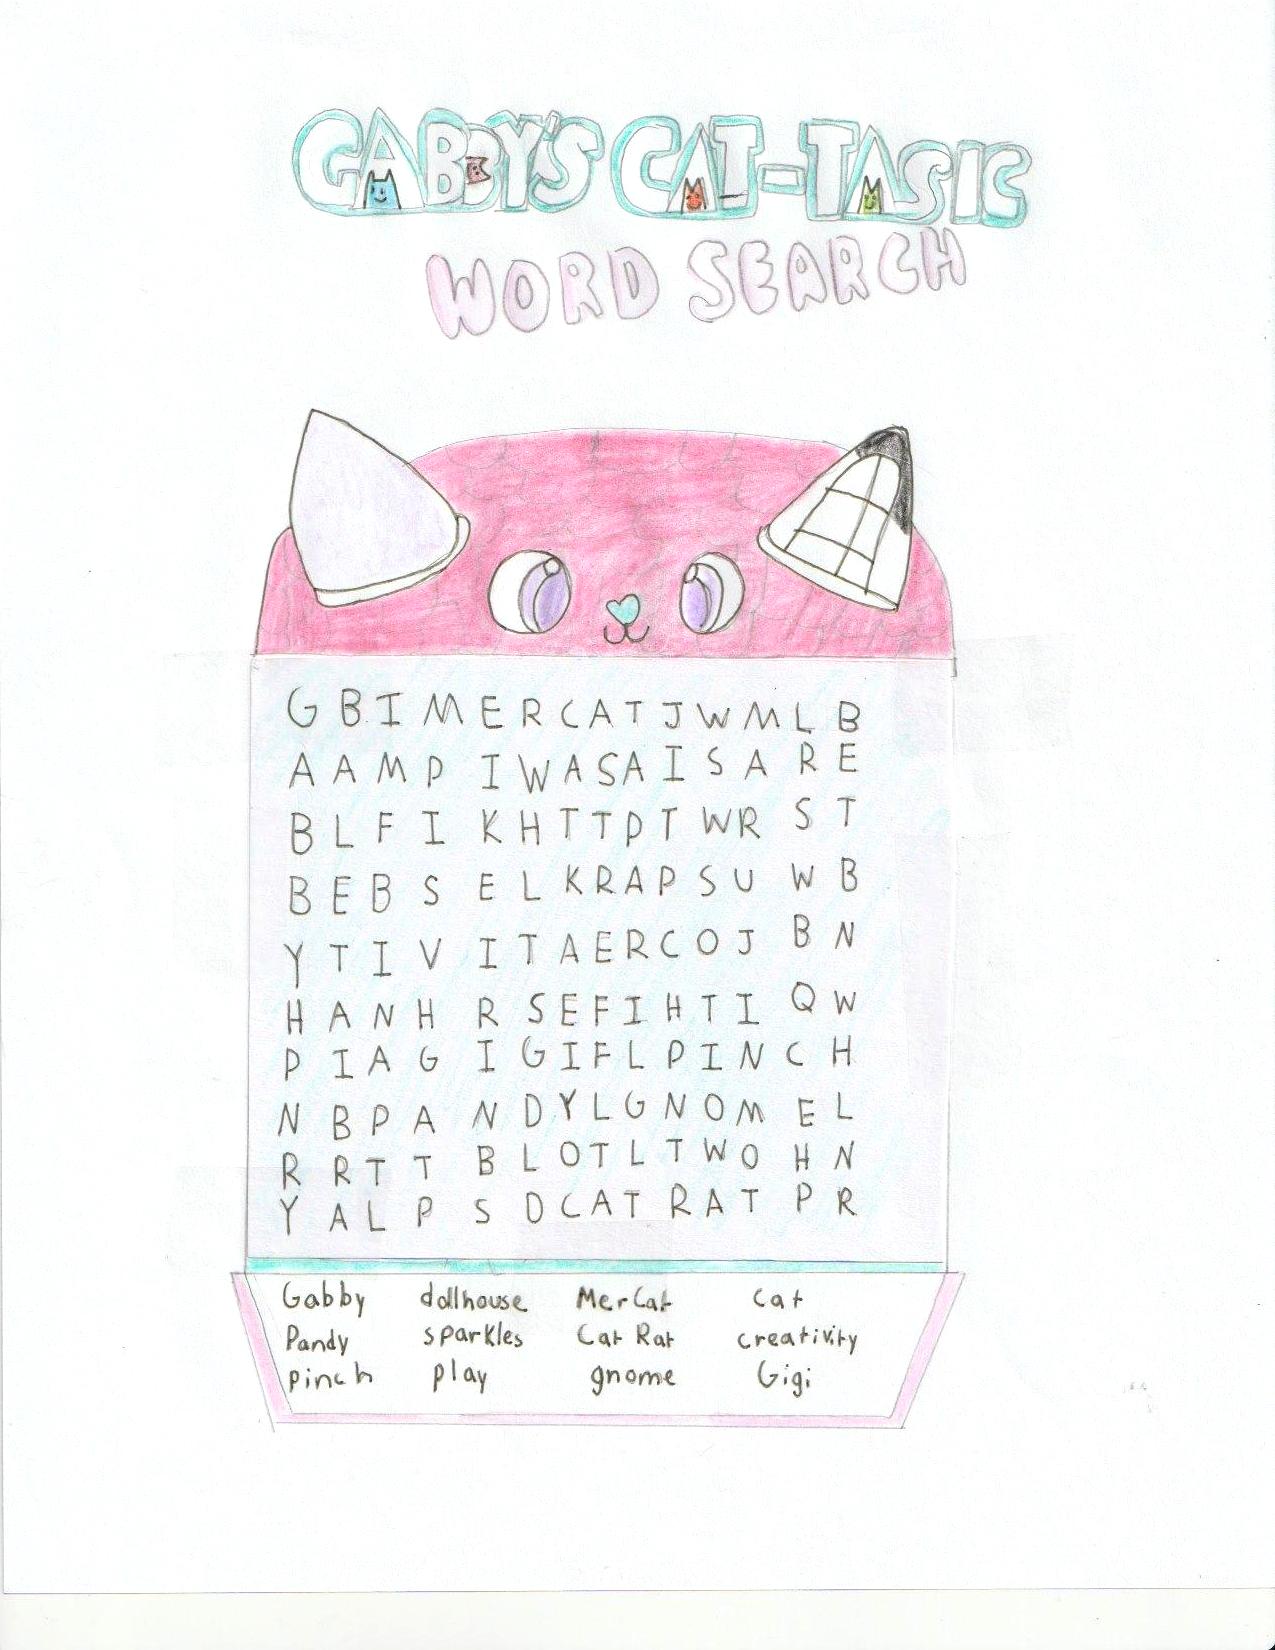 GABBY'S CAT-TASIC
WORD SEARCH
G B I M E R C A T J W M L B
A A M P I W A S A I S A R E
B L F I K H T T P T W R S T
B E B S E L K R A P S U W B
Y T I V I T A E R C O J B N
H A N H R S E F I H T I Q W
P I A G I G I F L P I N C H
N B P A N D Y L G N O M E L
R R T T B L O T L T W O H N
Y A L P S D C A T R A T P R
Gabby dollhouse MerCat cat
Pandy sparkles Cat Rat creativity
pinch play gnome Gigi